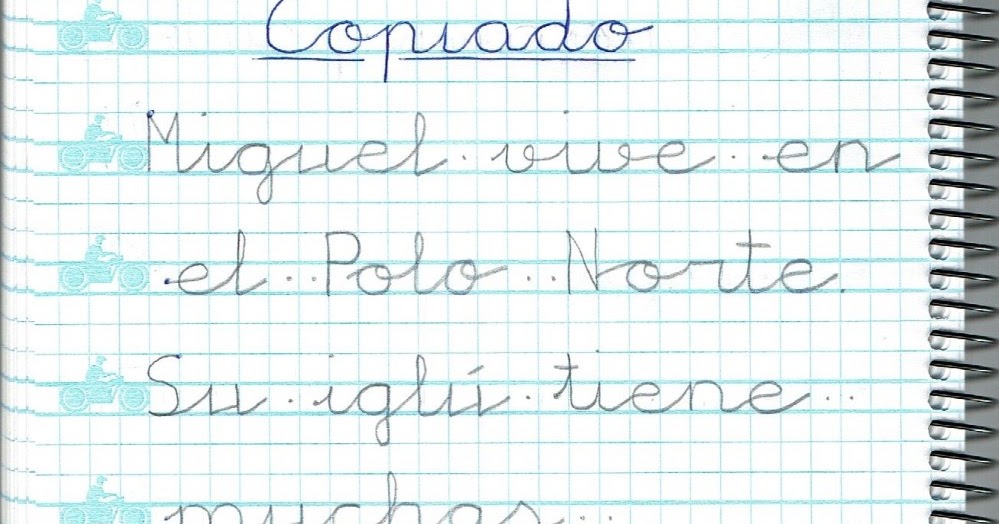 Copiado
Miguel vive en
el Polo Norte.
Su iglú tiene
muchas